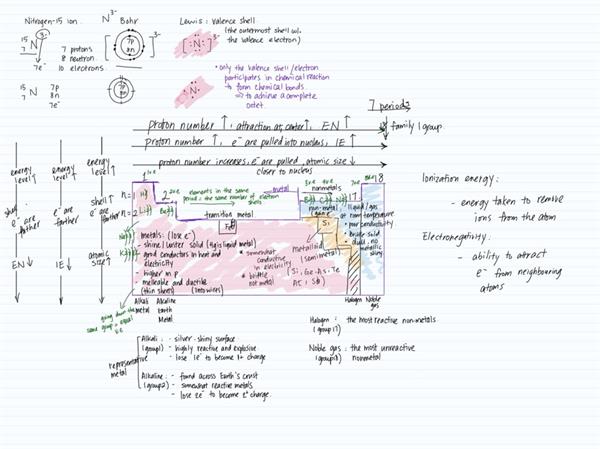 Nitrogen-15 ion
N 3-
Bohr
Lewis: Valence shell
(the outermost shell w.
the valence electron)
15
7
N
3-
7e⁻
7 protons
8 neutron
10 electrons
7p
8n
3-
[N]
3-
15
7
N
7p
8n
7e⁻
N
• only the valence shell/electron
participates in chemical reaction
→ form chemical bonds
⇒ to achieve a complete
octet
7 periods
family/group
proton number ↑, attraction at center ↑, EN ↑
proton number ↑, e⁻ are pulled into nucleus, IE ↑
proton number increases, e⁻ are pulled, atomic size ↓
closer to nucleus
energy
level ↑
energy
level ↑
energy
level ↑
shell ↑
shell ↑
e⁻ are
farther
e⁻ are
farther
e⁻ are
farther
EN ↓
IE ↓
atomic
size ↑
1
2
elements in the same
period = the same number of electron
shells
metal
nonmetals
17
18
n=1
n=2
H
Li
Be
Na
K
transition metal
Fe
B
C
N
non-metal
(gain e⁻)
Si
metals: (lose e⁻)
- shine/luster solid (Hg is liquid metal)
- good conductors in heat and
electricity
- higher in p
- malleable and ductile
(thin sheets)
(into wires)
• somewhat
conductive
in electricity
• brittle
not metal
metalloid
(semimetal)
(Si, Ge, As, Te
At, Sb)
liquid/gas
at room temperature
- poor conductivity
- brittle solid
- dull, no
metallic
shiny
going down the
same group = equal
v.e
Alkali
Metal
Alkaline
Earth
Metal
Halogen
Noble
gas
Ionization energy:
- energy taken to remove
ions from the atom
Electronegativity:
- ability to attract
e⁻ from neighbouring
atoms
Halogen: the most reactive non-metals
(group 17)
Noble gas: the most unreactive
(group 18) nonmetal
representative
metal
Alkali: - silver-shiny surface
(group 1) - highly reactive and explosive
- lose 1e⁻ to become 1+ charge
Alkaline: - found across Earth's crust
(group 2) - somewhat reactive metals
- lose 2e⁻ to become 2+ charge.